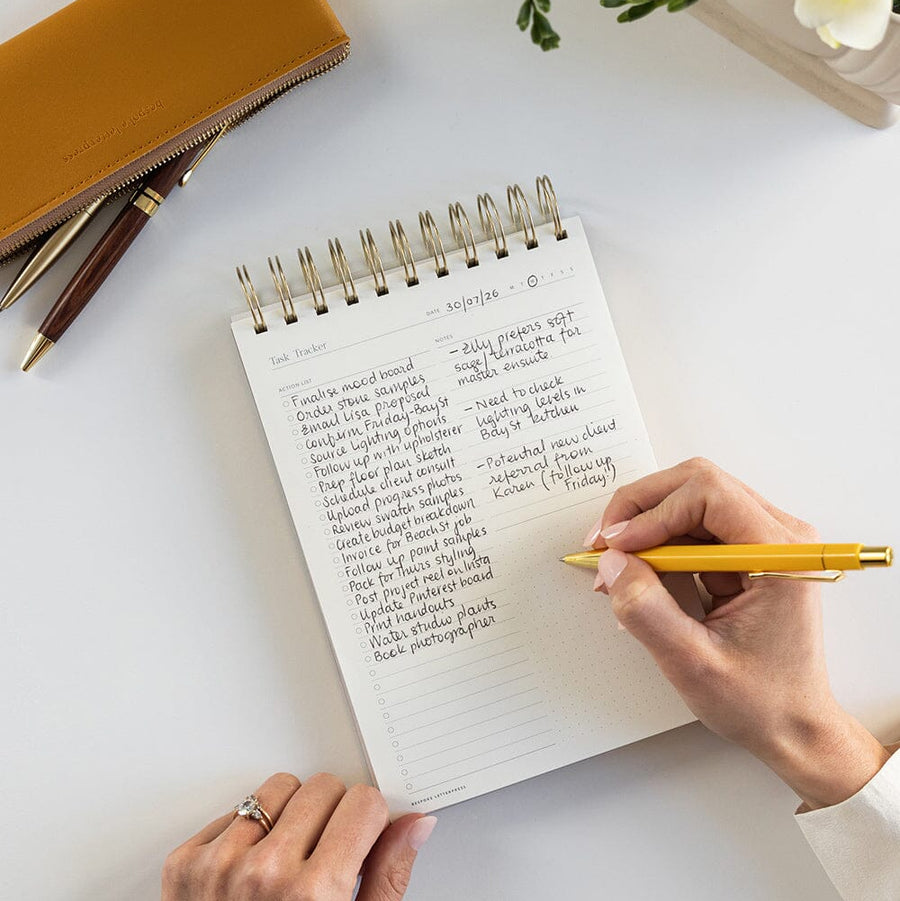 bespoke letterpress
DATE 30/07/26 M T W T F S S
Task Tracker
ACTION LIST
Finalise mood board
Order stone samples
Email Lisa proposal
Confirm Friday-Bay St
Source Lighting Options
Follow up with upholsterer
Prep floor plan sketch
Schedule client consult
Upload progress photos
Review swatch samples
Create budget breakdown
Invoice for Beach St job
Follow up paint samples
Pack for Thurs styling
Post project reel on Insta
Update Pinterest board
Print handouts
Water studio plants
Book photographer
NOTES
- Elly prefers soft
sage/terracotta for
master ensuite
- Need to check
lighting levels in
Bay St kitchen
- Potential new client
referral from
Karen (follow up
Friday!)
BESPOKE LETTERPRESS